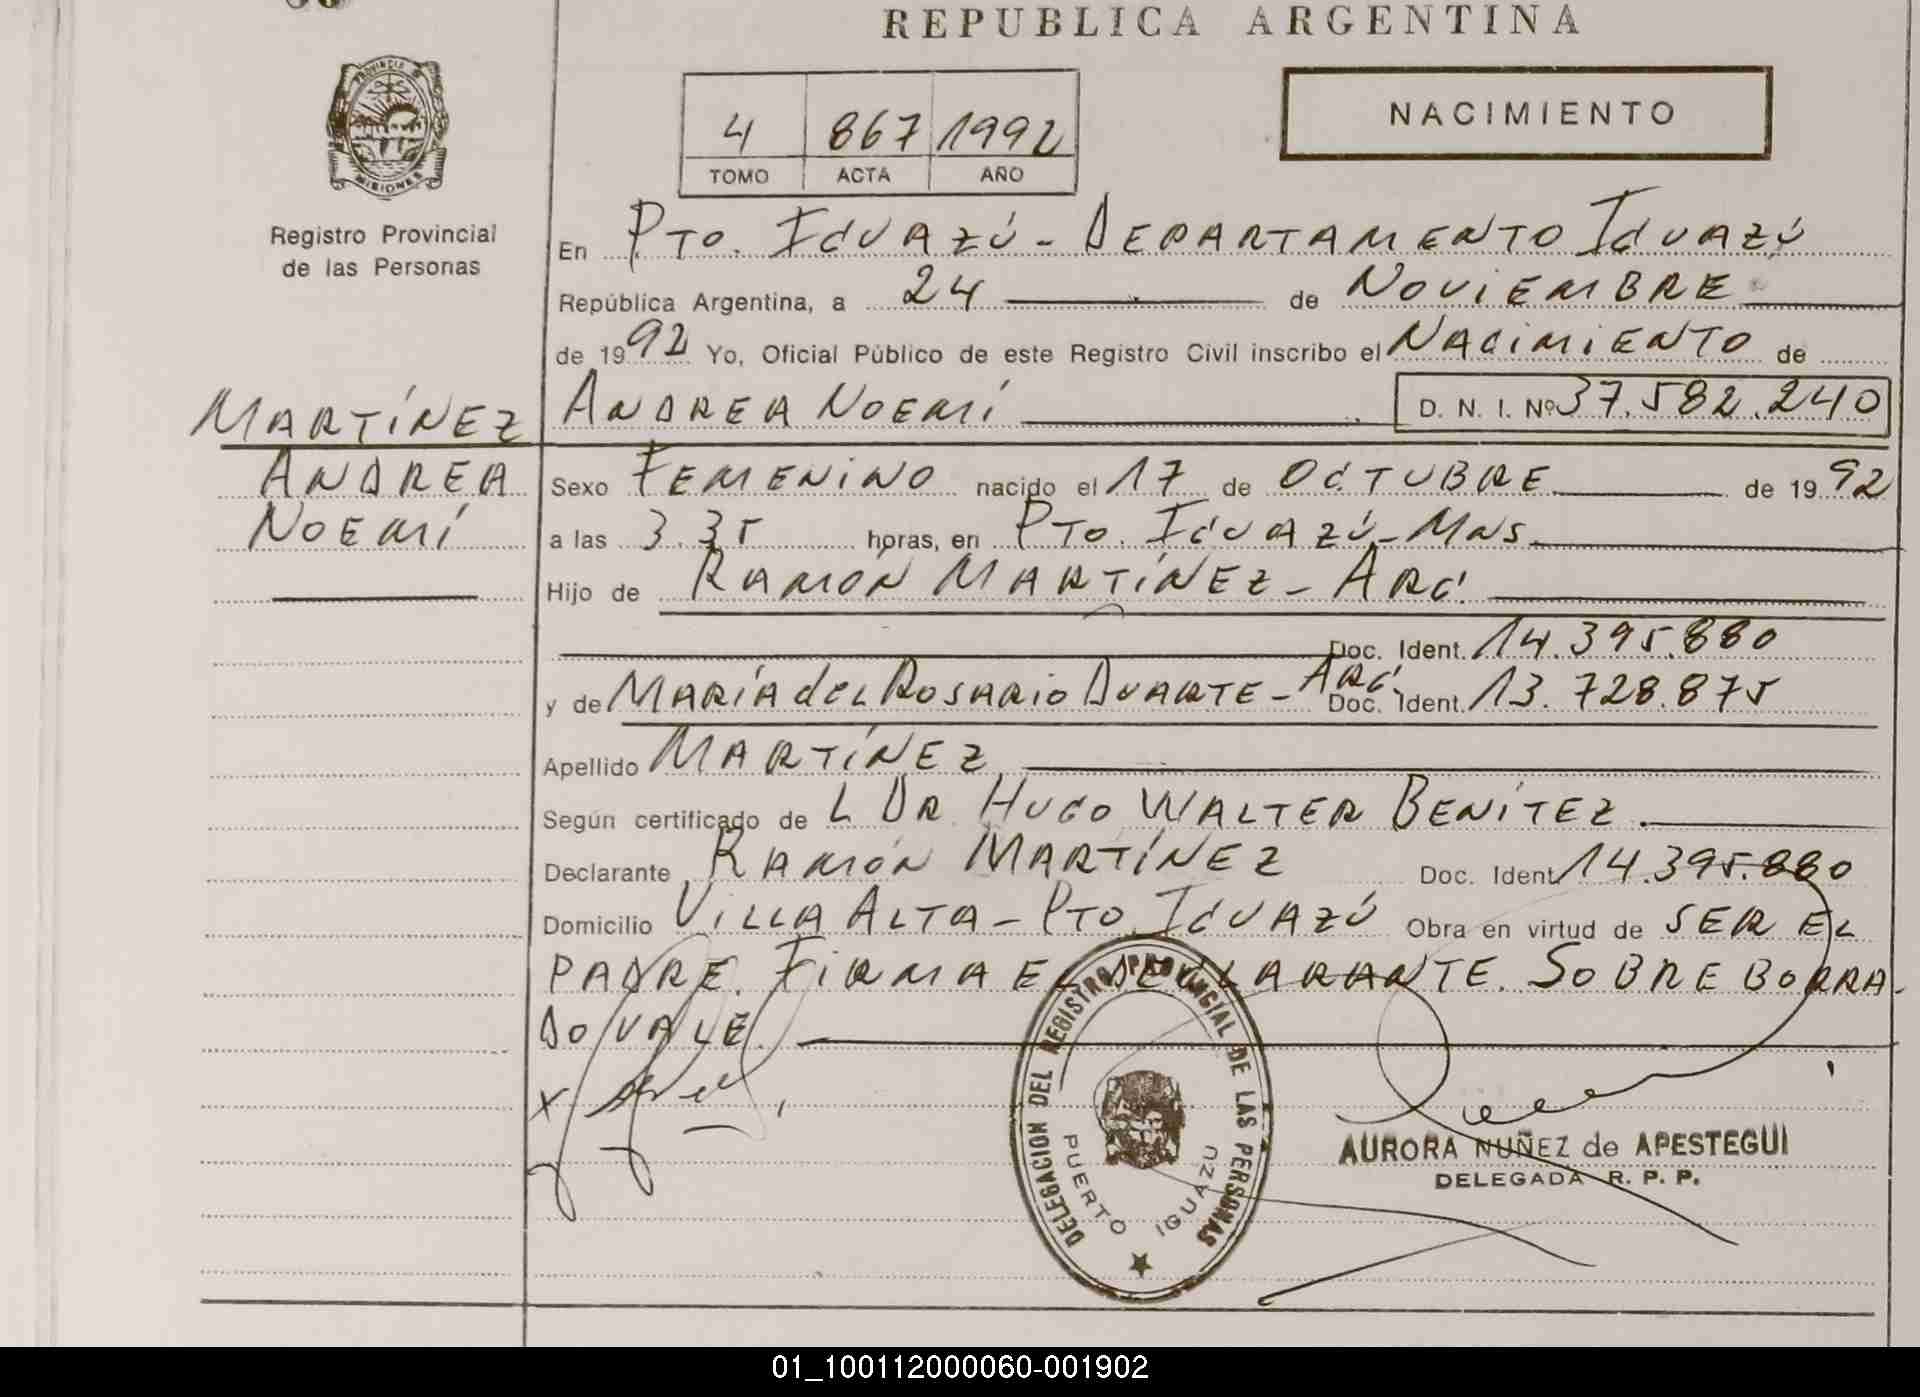 REPUBLICA ARGENTINA
PROVINCIA DE
MISIONES
Registro Provincial
de las Personas
4 867 1992
TOMO ACTA AÑO
NACIMIENTO
En PTO. IGUAZÚ - DEPARTAMENTO IGUAZÚ
República Argentina, a 24 de NOVIEMBRE
de 1992 Yo, Oficial Público de este Registro Civil inscribo el NACIMIENTO de
MARTÍNEZ ANDREA NOEMÍ D. N. I. Nº 37.582.240
ANDREA Sexo FEMENINO nacido el 17 de OCTUBRE de 1992
NOEMÍ a las 3.35 horas, en PTO. IGUAZÚ - MNS.
Hijo de RAMÓN MARTÍNEZ - ARG.
Doc. Ident. 14.395.880
y de MARÍA del ROSARIO DUARTE - ARG. Doc. Ident. 13.728.875
Apellido MARTÍNEZ
Según certificado de L DR HUGO WALTER BENÍTEZ.
Declarante RAMÓN MARTÍNEZ Doc. Ident. 14.395.880
Domicilio VILLA ALTA - PTO. IGUAZÚ Obra en virtud de SER EL
PADRE. FIRMA EL DECLARANTE. SOBRE BORRA-
DO VALE.
X
DELEGACION DEL REGISTRO PROVINCIAL DE LAS PERSONAS
PUERTO IGUAZU
AURORA NUÑEZ de APESTEGUI
DELEGADA R. P. P.
01_100112000060-001902